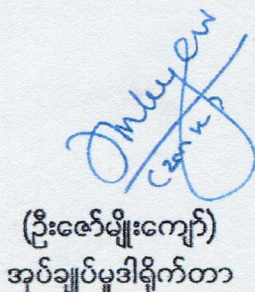 (ဦးဇော်မျိုးကျော်)
အုပ်ချုပ်မှုဒါရိုက်တာ